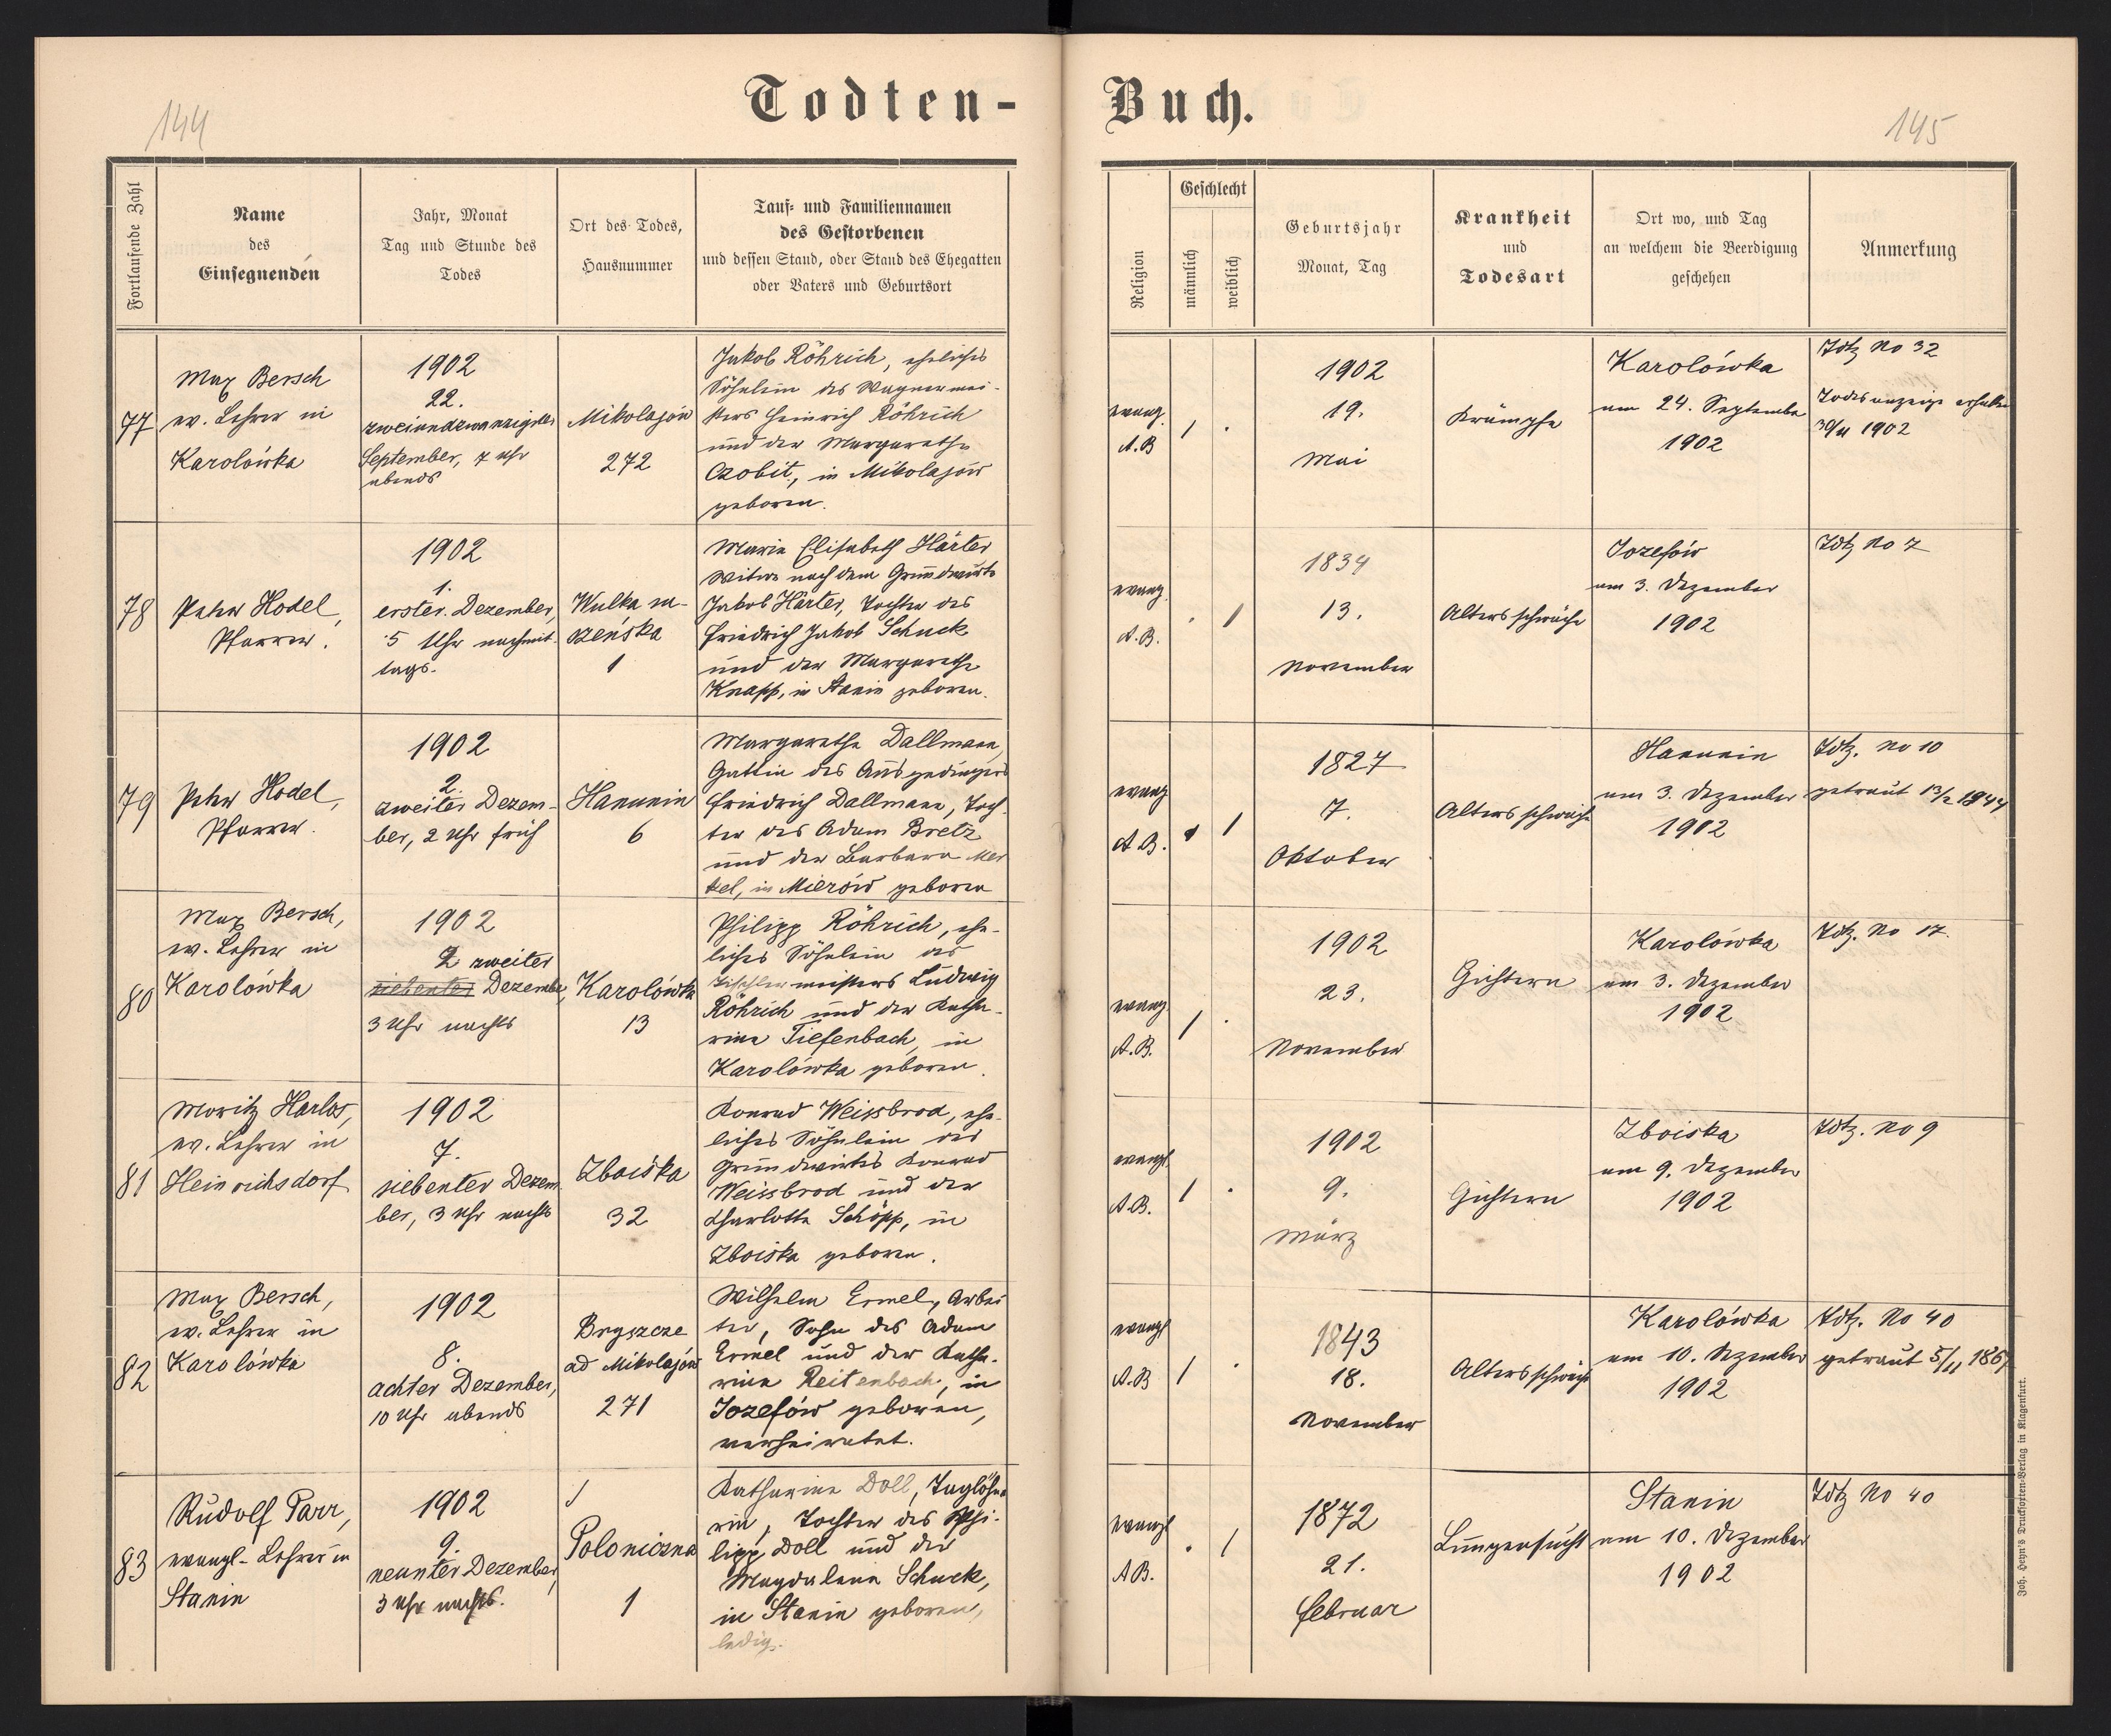 144
Todten-
Fortlaufende Zahl
Name
des
Einsegnenden
Jahr, Monat
Tag und Stunde des
Todes
Ort des Todes,
Hausnummer
Tauf- und Familiennamen
des Gestorbenen
und dessen Stand, oder Stand des Ehegatten
oder Vaters und Geburtsort
77
Max Bersch
ev. Lehrer in
Karolówka
1902
22.
zweiundzwanzigster
September, 7 Uhr
abends
Mikolajów
272
Jakob Röhrich, eheliches
Söhnlein des Wagnermei-
sters Heinrich Röhrich
und der Margarethe
Czobit, in Mikolajów
geboren.
78
Peter Hodel,
Pfarrer.
1902
1.
erster Dezember,
5 Uhr nachmit-
tags.
Wulka su-
szeńska
1
Maria Elisabeth Härter
Witwe nach dem Grundwirte
Jakob Härter, Tochter des
Friedrich Jakob Schuck
und der Margarethe
Knapp, in Stanin geboren.
79
Peter Hodel,
Pfarrer.
1902
2.
zweiter Dezem-
ber, 2 Uhr früh
Hanunin
6
Margarethe Dallmann,
Gattin des Ausgedingers
Friedrich Dallmann, Toch-
ter des Adam Bretz
und der Barbara Mer
kel, in Mierów geboren
80
Max Bersch,
ev. Lehrer in
Karolówka
1902
2 zweiter
siebenter Dezember,
3 Uhr nachts
Karolówka
13
Philipp Röhrich, ehe-
liches Söhnlein des
Tischlermeisters Ludwig
Röhrich und der Katha-
rina Tiefenbach, in
Karolówka geboren.
81
Moritz Harlos,
ev. Lehrer in
Heinrichsdorf
1902
7.
siebenter Dezem
ber, 3 Uhr nachts
Zboiska
32
Konrad Weissbrod, ehe-
liches Söhnlein des
Grundwirtes Konrad
Weissbrod und der
Charlotte Schöpp, in
Zboiska geboren.
82
Max Bersch,
ev. Lehrer in
Karolówka
1902
8.
achter Dezember,
10 Uhr abends
Bryszcze
ad Mikolajów
271
Wilhelm Ermel, Arbei
ter, Sohn des Adam
Ermel und der Katha-
rina Reitenbach, in
Jozefów geboren,
verheiratet.
83
Rudolf Parr,
evangl. Lehrer in
Stanin
1902
9.
neunter Dezember,
3 Uhr nachts.
Poloniczna
1
Katharina Doll, Taglöhne
rin, Tochter des Phi-
lipp Doll und der
Magdalena Schuck,
in Stanin geboren,
ledig.
Buch.
145
Religion
Geschlecht
männlich
weiblich
Geburtsjahr
Monat, Tag
Krankheit
und
Todesart
Ort wo, und Tag
an welchem die Beerdigung
geschehen
Anmerkung
evang.
A.B
1
1902
19.
Mai
Krämpfe
Karolówka
am 24. September
1902
Tdtz No 32
Todesanzeige erhalten
30/11 1902
evang.
A.B.
1
1834
13.
November
Altersschwäche
Jozefów
am 3. Dezember
1902
Tdtz No 7
evang
A.B.
1
1827
7.
Oktober
Altersschwäche
Hanunin
am 3. Dezember
1902
Tdtz. No 10
getraut 13/2 1844
evang.
A.B.
1
1902
23.
November
Gichtern
Karolówka
am 3. Dezember
1902
Tdtz. No 17.
evangl.
A.B.
1
1902
9.
März
Gichtern
Zboiska
am 9. Dezember
1902
Tdtz. No 9
evangl
A.B
1
1843
18.
November
Altersschwäche
Karolówka
am 10. Dezember
1902
Tdtz. No 40
getraut 5/11 1867
evangl
AB.
1
1872
21.
Februar
Lungensucht
Stanin
am 10. Dezember
1902
Tdtz No 40
Joh. Heyn's Drucksorten-Verlag in Klagenfurt.